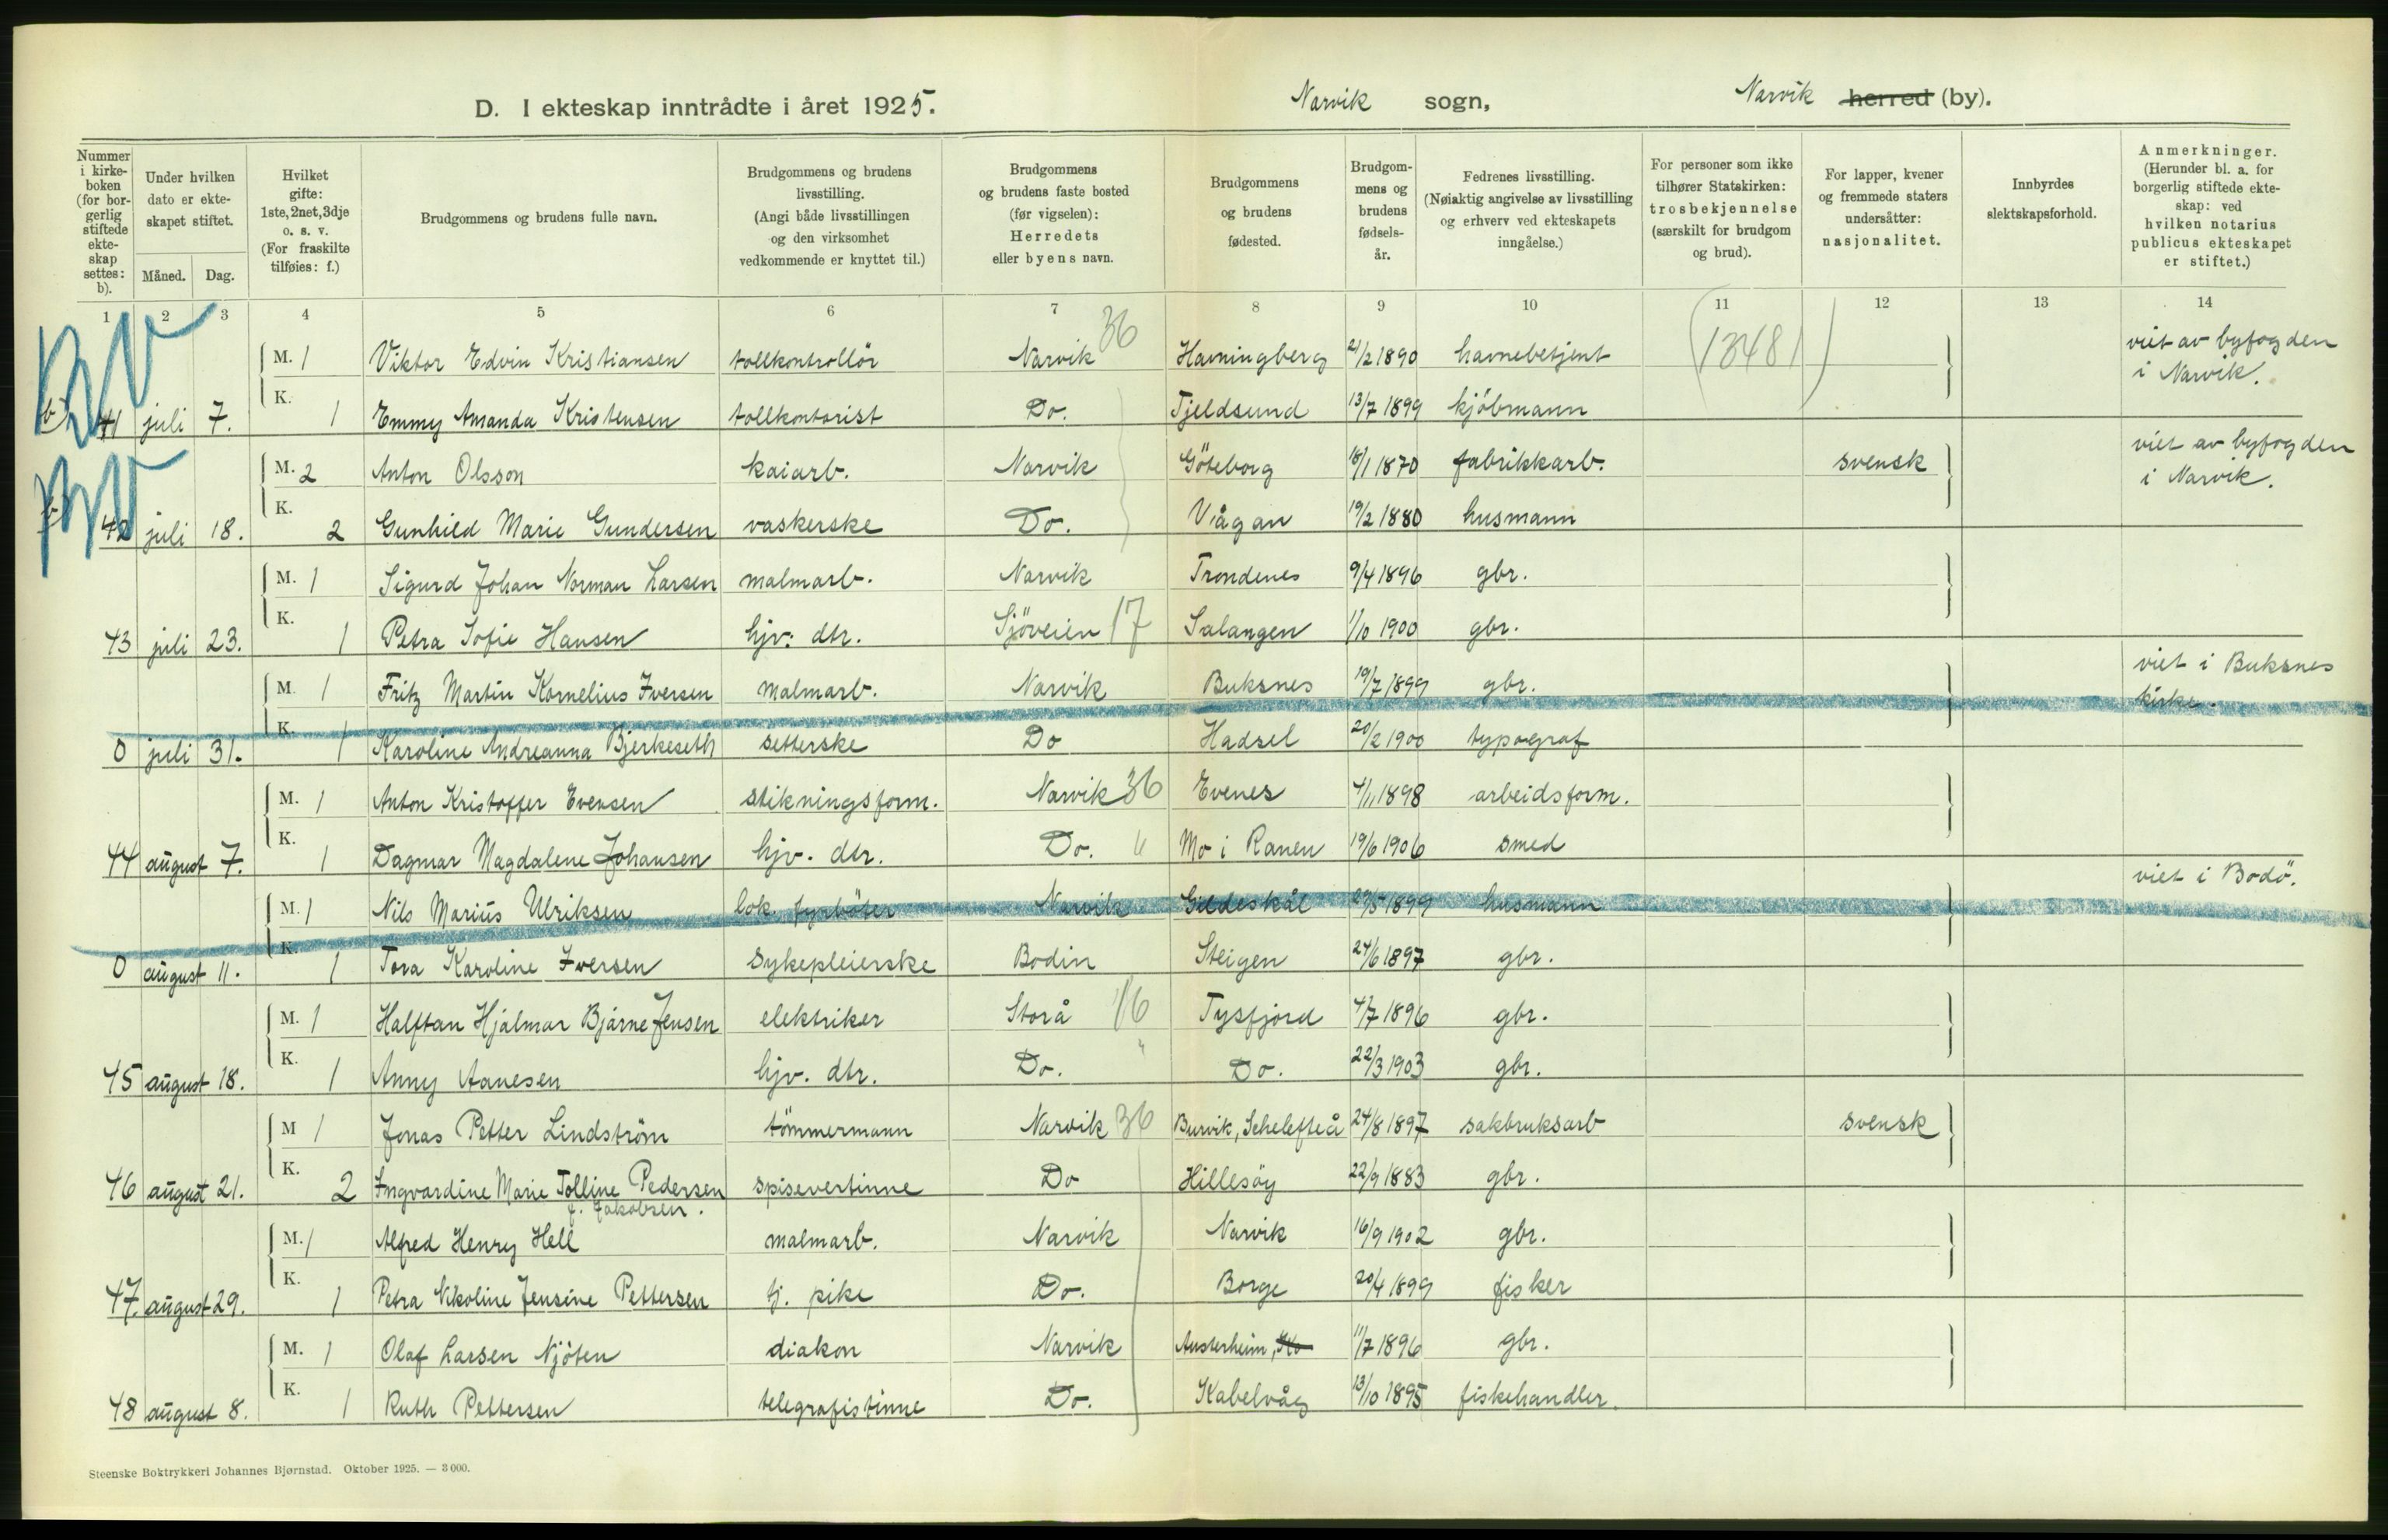 D. I ekteskap inntrådte i året 1925. Narvik sogn, Narvik herred (by).
Nummer i kirkeboken (for borgerlig stiftede ekteskap settes: b).
Under hvilken dato er ekteskapet stiftet.
Måned. Dag.
Hvilket gifte: 1ste, 2net, 3dje o. s. v. (For fraskilte tilføies: f.)
Brudgommens og brudens fulle navn.
Brudgommens og brudens livsstilling. (Angi både livsstillingen og den virksomhet vedkommende er knyttet til.)
Brudgommens og brudens faste bosted (før vigselen): Herredets eller byens navn.
Brudgommens og brudens fødested.
Brudgommens og brudens fødselsår.
Fedrenes livsstilling. (Nøiaktig angivelse av livsstilling og erhverv ved ekteskapets inngåelse.)
For personer som ikke tilhører Statskirken: trosbekjennelse (særskilt for brudgom og brud).
For lapper, kvener og fremmede staters undersåtter: nasjonalitet.
Innbyrdes slektskapsforhold.
Anmerkninger. (Herunder bl. a. for borgerlig stiftede ekteskap: ved hvilken notarius publicus ekteskapet er stiftet.)
1 2 3 4 5 6 7 8 9 10 11 12 13 14
M. 1 Viktor Edvin Kristiansen tollkontrollör Narvik 36 Havningberg 21/2 1890 havnebetjent (13481) viet av byfogden i Narvik.
b. 41 juli 7. K. 1 Emmy Amanda Kristensen tollkontorist Do. Tjeldsund 13/7 1899 kjöbmann
M. 2 Anton Olsson kaiarb. Narvik Göteborg 18/1 1870 fabrikkarb. svensk viet av byfogden i Narvik.
b. 42 juli 18. K. 2 Gunhild Marie Gundersen vaskerske Do. Vågan 19/2 1880 husmann
M. 1 Sigurd Johan Norman Larsen malmarb. Narvik Trondenes 9/4 1896 gbr.
43 juli 23. K. 1 Petra Sofie Hansen hjv. dtr. Sjöveien 17 Salangen 1/10 1900 gbr.
M. 1 Fritz Martin Kornelius Iversen malmarb. Narvik Buksnes 19/7 1899 gbr. viet i Buksnes kirke.
0 juli 31. K. 1 Karoline Andreanna Bjerkeseth setterske Do Hadsel 20/2 1900 typograf
M. 1 Anton Kristoffer Evensen stikningsform. Narvik 36 Evenes 4/11 1898 arbeidsform.
44 august 7. K. 1 Dagmar Magdalene Johansen hjv. dtr. Do. " Mo i Ranen 19/6 1906 smed
M. 1 Nils Marius Ulriksen lok. fyrböter Narvik Gildeskål 29/5 1899 husmann viet i Bodö.
0 august 11. K. 1 Tora Karoline Iversen sykepleierske Bodin Steigen 24/6 1897 gbr.
M. 1 Halftan Hjalmar Bjarne Jensen elektriker Storå 16 Tysfjord 4/7 1896 gbr.
45 august 18. K. 1 Anny Aanesen hjv. dtr. Do. " Do. 22/3 1903 gbr.
M 1 Jonas Petter Lindström tömmermann Narvik 36 Burvik, Schelefteå 24/8 1897 sakbruksarb svensk
46 august 21. K. 2 Ingvardine Marie Tolline Pedersen spisevertinne Do Hillesöy 22/9 1883 gbr.
f. Jakobsen.
M. 1 Alfred Henry Hell malmarb. Narvik Narvik 16/9 1902 gbr.
47. august 29. K. 1 Petra Nikoline Jensine Pettersen tj. pike Do. Borge 20/4 1899 fisker
M. 1 Olaf Larsen Njöten diakon Narvik Austerheim, 11/7 1896 gbr.
48 august 8. K. 1 Ruth Pettersen telegrafistinne Do. Kabelvåg 13/10 1895 fiskehandler.
Steenske Boktrykkeri Johannes Bjørnstad. Oktober 1925. — 3000.